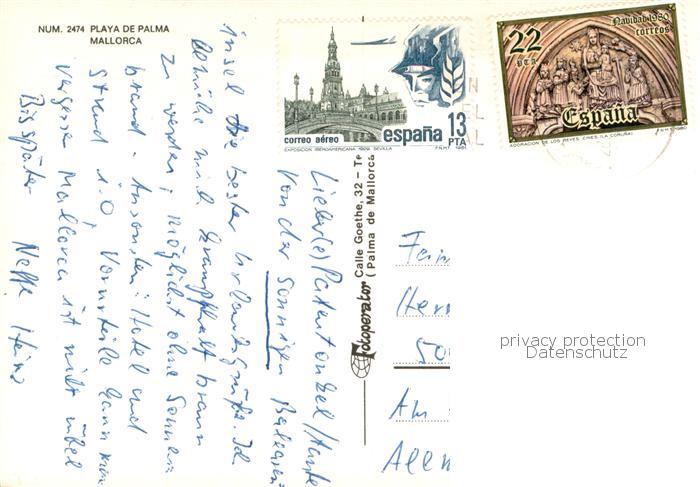 NUM. 2474 PLAYA DE PALMA
MALLORCA
correo aéreo
españa 13
PTA
EXPOSICION IBEROAMERICANA 1929 SEVILLA
F.N.M.T. 1981
22
PTA
Navidad 1980
correos
España
ADORACION DE LOS REYES. CINES (LA CORUÑA)
F.N.M.T. 1980
Fotoperator Calle Goethe, 32 - Te
(Palma de Mallorca
Liebe(r) Patentonkel/tante
Von der sonnigen Balearen
insel die besten Urlaubsgrüße. Ich
bemühe mich krampfhaft braun
zu werden, möglichst ohne Sonnen
brand. Ansonsten: Hotel und
Strand i.O, Vorurteile kann man
vergessen Mallorca ist nicht übel
Bis später Neffe Heinz
Fam
Herr
500
Am
Allem
privacy protection
Datenschutz